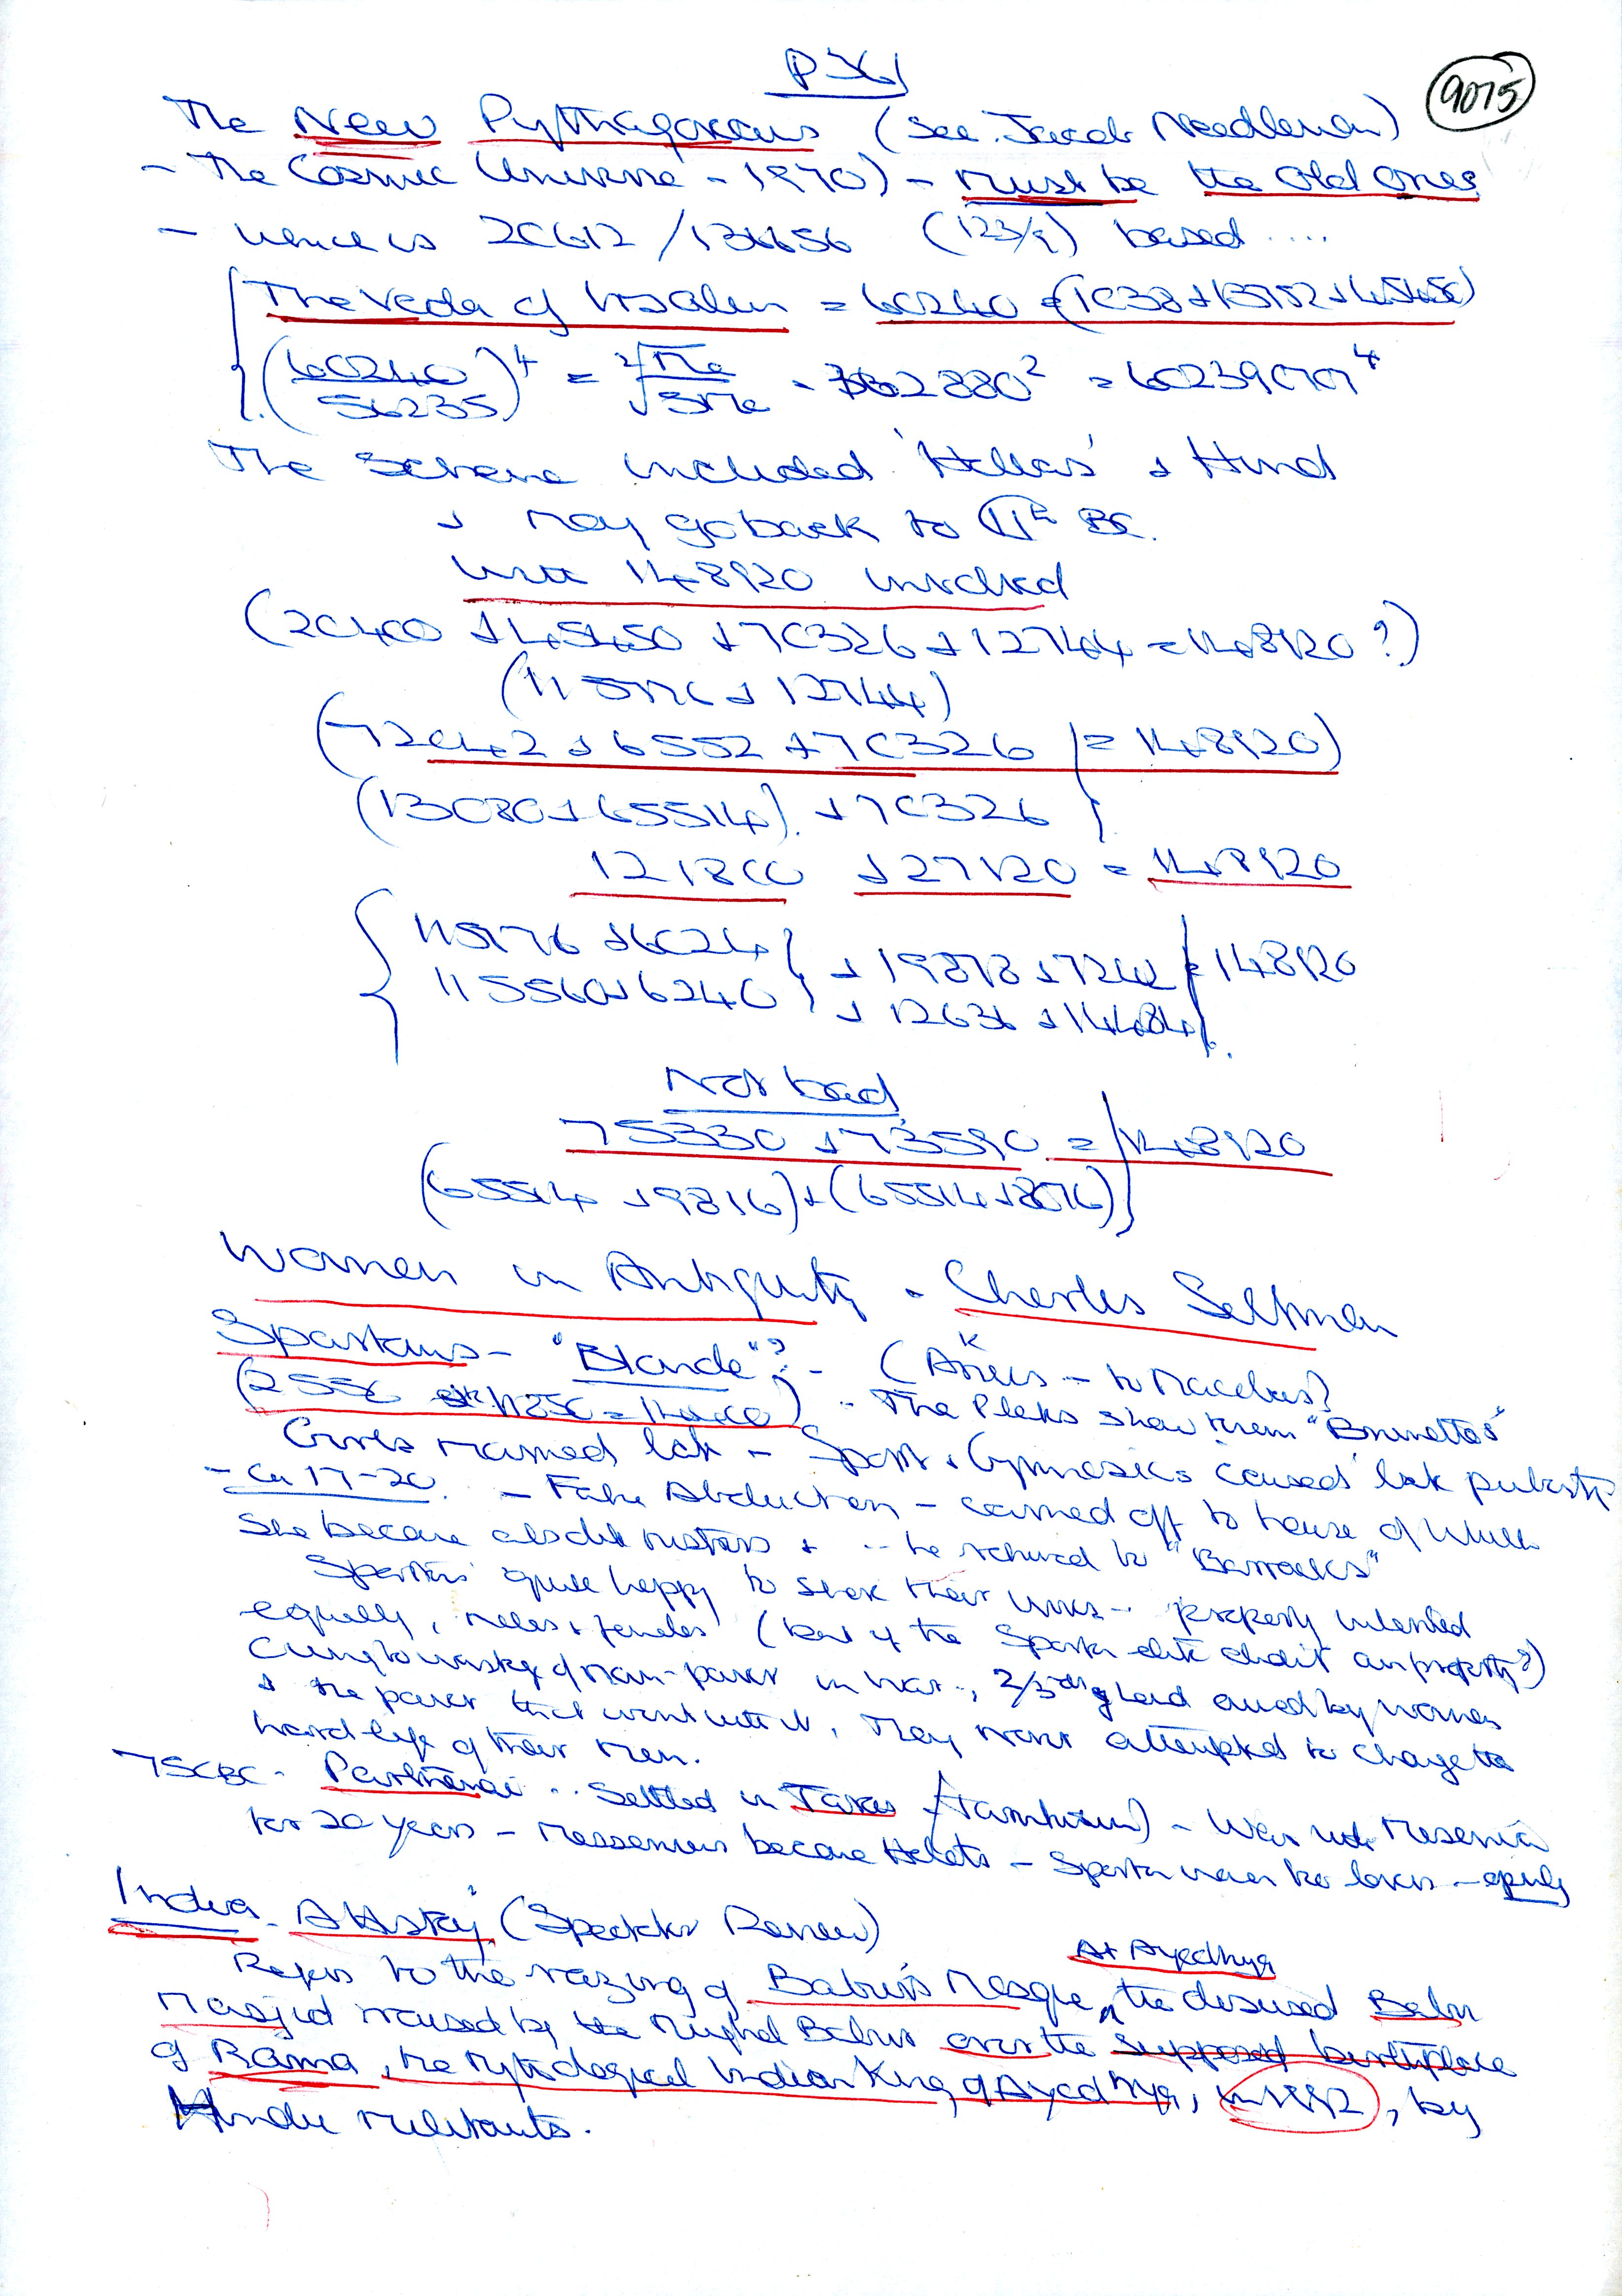 P 361
9075
The New Pythagoreans (See. Jacob Needleman)
- The Cosmic Universe - 1970) - must be the old ones
- hence is 20612 / 136656 (123/9) based ....
The Veda of = 60240 = (1038 + 13752 + 45450)
(60240 / 56235)⁴ = - 362880² = 6023907⁴
The Scheme included 'Hellas' & Hind
& may go back to 11th BC.
with 148920 involved
(20400 + 45450 + 70326 + 12744 = 148920 ?)
(115176 + 12744)
(72042 + 6552 + 70326 = 148920)
(13080 + 65514) + 70326
121800 + 27120 = 148920
115776 + 6024 + 19878 + 7242 = 148920
115560 + 6240 + 12636 + 14484
Not bad
75330 + 73590 = 148920
(65514 + 9816) + (65514 + 8076)
Women in Antiquity - Charles Seltman
Spartans - "Blonde"? - ( - to
(2550 11850 = 14400) - The show them "Brunettes"
Girls married late - Sport & Gymnasics caused late puberty
- Ca 17-20. - Fake Abduction - carried off to house of which
She became absolute mistress & .. he returned to "Barracks"
Spartans quite happy to share their wives - property inherited
equally, males & females (but if the Spartan elite didn't own property?)
Owing to wastage of man-power in war .., 2/3rds of land owned by women
& the power that went with it, They never attempted to change the
hard life of their men.
750BC - Partheniai .. Settled in Taras (Tarentum) - War with Messenia
for 20 years - Messenians became Helots - Sparta never the loser -
India - A History (Spectator Review)
At Ayodhya
Refers to the razing of Babur's Mosque, the disused Babri
Masjid raised by the Mughal Babur over the supposed birthplace
of Rama, the Mythological Indian King of Ayodhya, in 1992, by
Hindu militants.